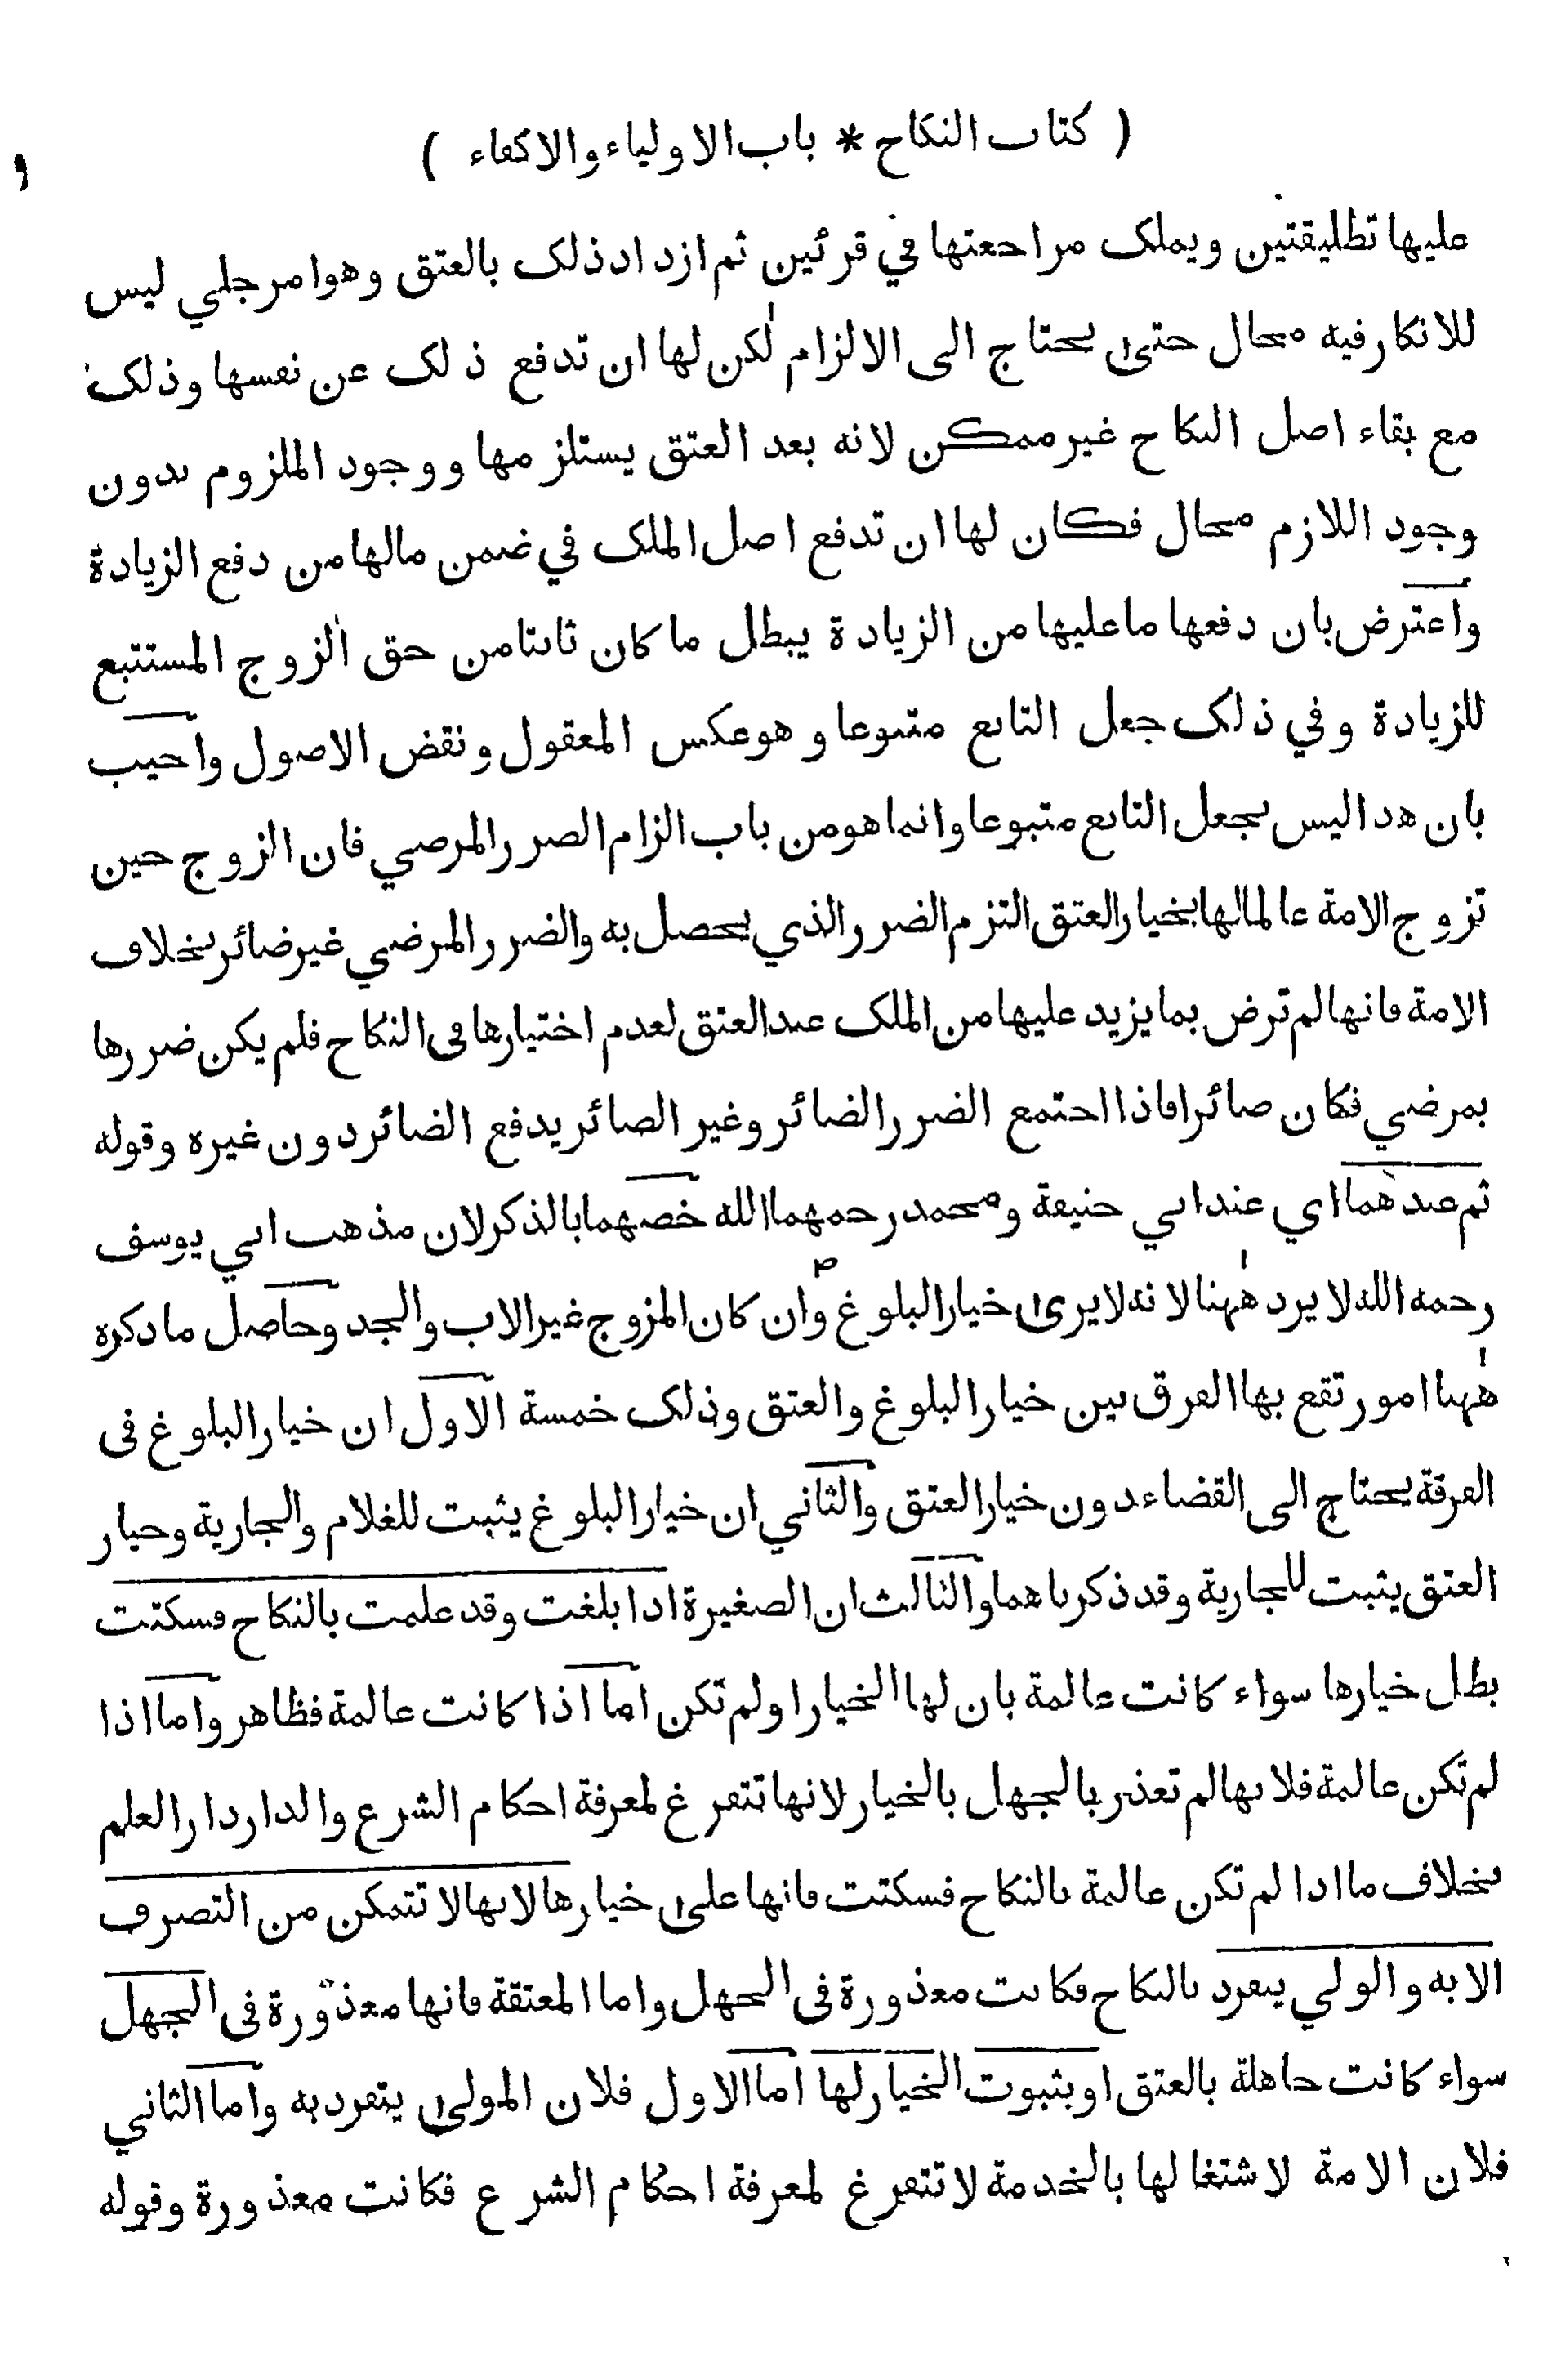 ( كتاب النكاح * باب الاولياء والاكفاء )
عليها تطليقتين ويملك مراجعتها في قرئين ثم ازداد ذلك بالعتق وهو امر جلي ليس
للانكار فيه مجال حتى يحتاج الى الالزام لكن لها ان تدفع ذلك عن نفسها وذلك
مع بقاء اصل النكاح غير ممكن لانه بعد العتق يستلزمها ووجود الملزوم بدون
وجود اللازم محال فكان لها ان تدفع اصل الملك في ضمن مالها من دفع الزيادة
واعترض بان دفعها ما عليها من الزيادة يبطل ما كان ثابتا من حق الزوج المستتبع
للزيادة وفي ذلك جعل التابع متبوعا وهو عكس المعقول ونقض الاصول واجيب
بان هذا ليس بجعل التابع متبوعا وانما هو من باب الزام الضرر المرضي فان الزوج حين
تزوج الامة عالما لها بخيار العتق التزم الضرر الذي يحصل به والضرر المرضي غير ضائر بخلاف
الامة فانها لم ترض بما يزيد عليها من الملك عند العتق لعدم اختيارها في النكاح فلم يكن ضررها
بمرضي فكان ضائرا فاذا اجتمع الضرر الضائر وغير الضائر يدفع الضائر دون غيره وقوله
ثم عندهما اي عند ابي حنيفة ومحمد رحمهما الله خصهما بالذكر لان مذهب ابي يوسف
رحمه الله لا يرد ههنا لانه لا يرى خيار البلوغ وان كان المزوج غير الاب والجد وحاصل ما ذكره
ههنا امور تقع بها الفرق بين خيار البلوغ والعتق وذلك خمسة الاول ان خيار البلوغ في
الفرقة يحتاج الى القضاء دون خيار العتق والثاني ان خيار البلوغ يثبت للغلام والجارية وخيار
العتق يثبت للجارية وقد ذكرناهما والثالث ان الصغيرة اذا بلغت وقد علمت بالنكاح فسكتت
بطل خيارها سواء كانت عالمة بان لها الخيار او لم تكن اما اذا كانت عالمة فظاهر واما اذا
لم تكن عالمة فلانها لم تعذر بالجهل بالخيار لانها تتفرغ لمعرفة احكام الشرع والدار دار العلم
بخلاف ما اذا لم تكن عالمة بالنكاح فسكتت فانها على خيارها لانها لا تتمكن من التصرف
الا به والولي ينفرد بالنكاح فكانت معذورة في الجهل واما المعتقة فانها معذورة في الجهل
سواء كانت جاهلة بالعتق او بثبوت الخيار لها اما الاول فلان المولى يتفرد به واما الثاني
فلان الامة لاشتغالها بالخدمة لا تتفرغ لمعرفة احكام الشرع فكانت معذورة وقوله